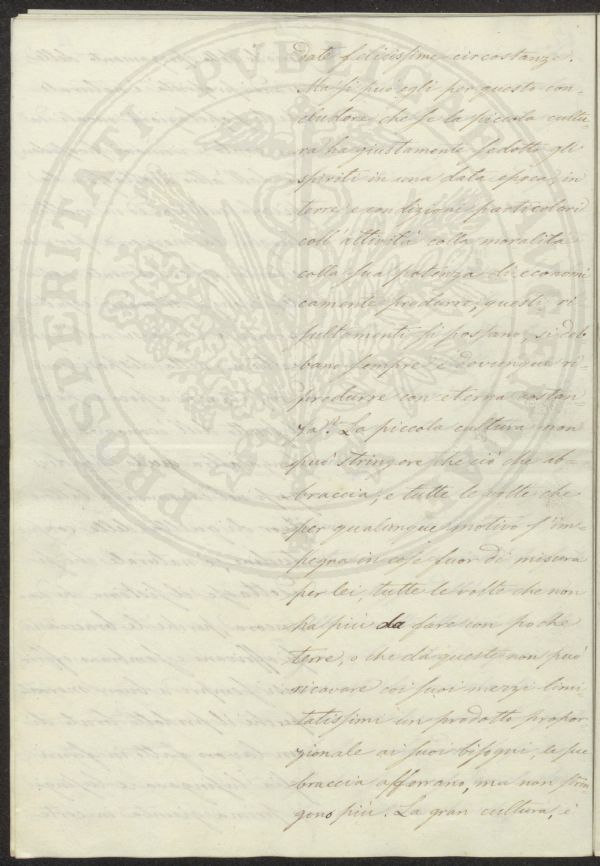 date felicissime circostanze.
Ma si può egli per questo con-
cludere che se la piccola cultu-
ra ha giustamente sedotto gli
spiriti in una data epoca, in
terre e condizioni particolari
coll' attività colla moralità
colla sua potenza di economi
camente produrre, questi ri
sultamenti si possano, si deb
bano sempre e dovunque ri-
produrre con eterna costan-
za? La piccola cultura non
può stringere che ciò che ab-
braccia, e tutte le volte che
per qualunque motivo s'im
pegna in cose fuor di misura
per lei, tutte le volte che non
ha più da fare con poche
terre, o che da queste non può
ricavare coi suoi mezzi limi
tatissimi un prodotto propor
zionale ai suoi bisogni, le sue
braccia afferrano, ma non strin
gono più. La gran cultura, è
PROSPERITATI PVBLICAE AVGENDAE